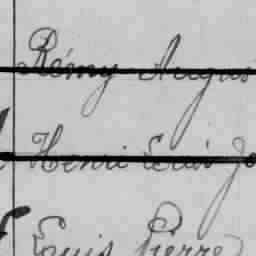 Rémy Augus
Henri Louis Jo
Louis Pierre